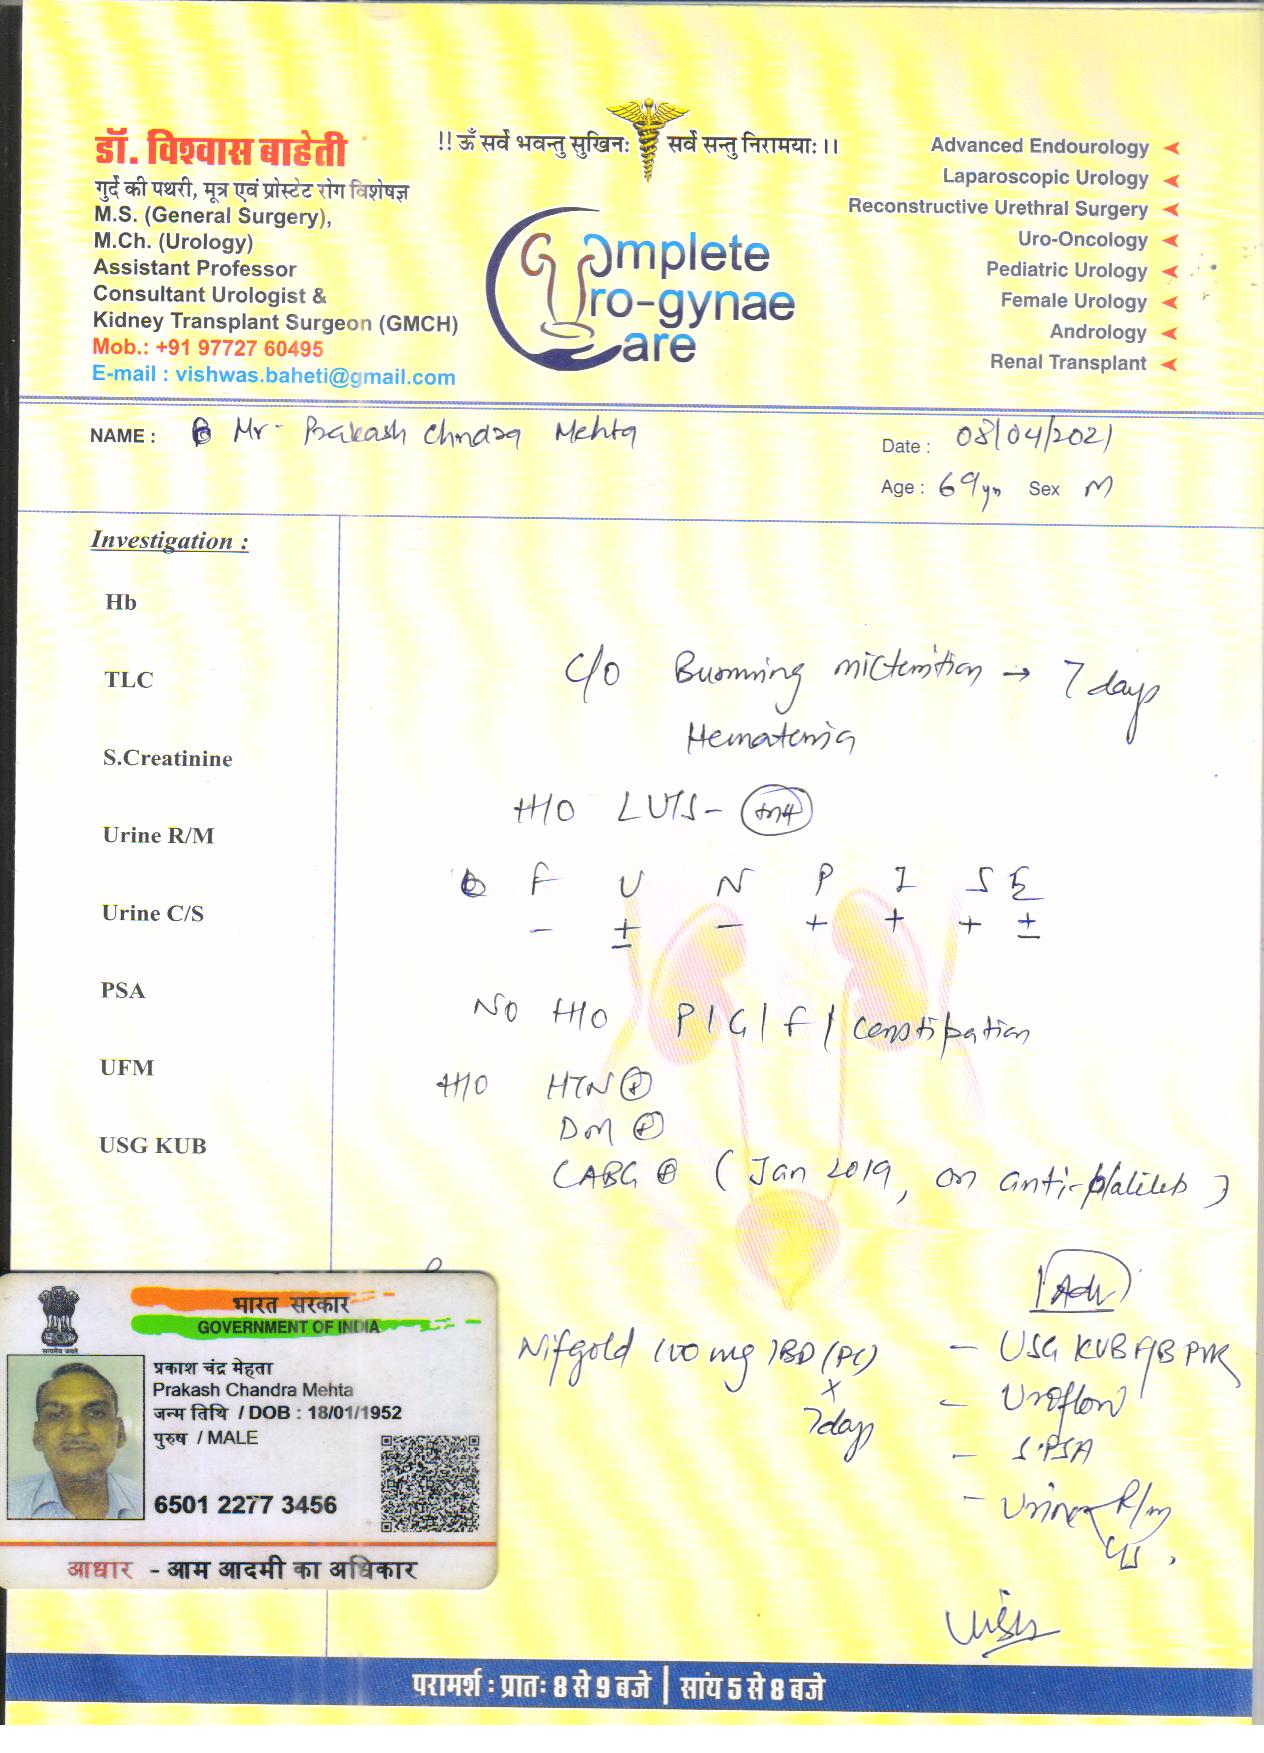 डॉ. विश्वास बाहेती
गुर्दे की पथरी, मूत्र एवं प्रोस्टेट रोग विशेषज्ञ
M.S. (General Surgery),
M.Ch. (Urology)
Assistant Professor
Consultant Urologist &
Kidney Transplant Surgeon (GMCH)
Mob.: +91 97727 60495
E-mail : vishwas.baheti@gmail.com
!! ॐ सर्वे भवन्तु सुखिनः सर्वे सन्तु निरामयाः ।।
Complete
Uro-gynae
Care
Advanced Endourology
Laparoscopic Urology
Reconstructive Urethral Surgery
Uro-Oncology
Pediatric Urology
Female Urology
Andrology
Renal Transplant
NAME : Mr. Prakash Chndra Mehta
Date : 08/04/2021
Age : 69yrs Sex M
Investigation :
Hb
TLC
S.Creatinine
Urine R/M
Urine C/S
PSA
UFM
USG KUB
C/O Burnning micturition → 7 days
Hematuria
H/O LUTS -
F U N P I S E
- ± - + + + ±
No H/O P/G/F/Constipation
H/O HTN ⊕
DM ⊕
CABG ⊕ (Jan 2019, on anti-platelets)
Adv
Nifgold 100 mg 1BD (PC)
x
7days
- USG KUB F/B PVR
- Uroflow
- S.PSA
- Urine R/m
C/S.
भारत सरकार
GOVERNMENT OF INDIA
प्रकाश चंद्र मेहता
Prakash Chandra Mehta
जन्म तिथि / DOB : 18/01/1952
पुरुष / MALE
6501 2277 3456
आधार - आम आदमी का अधिकार
परामर्श : प्रातः 8 से 9 बजे | सांय 5 से 8 बजे